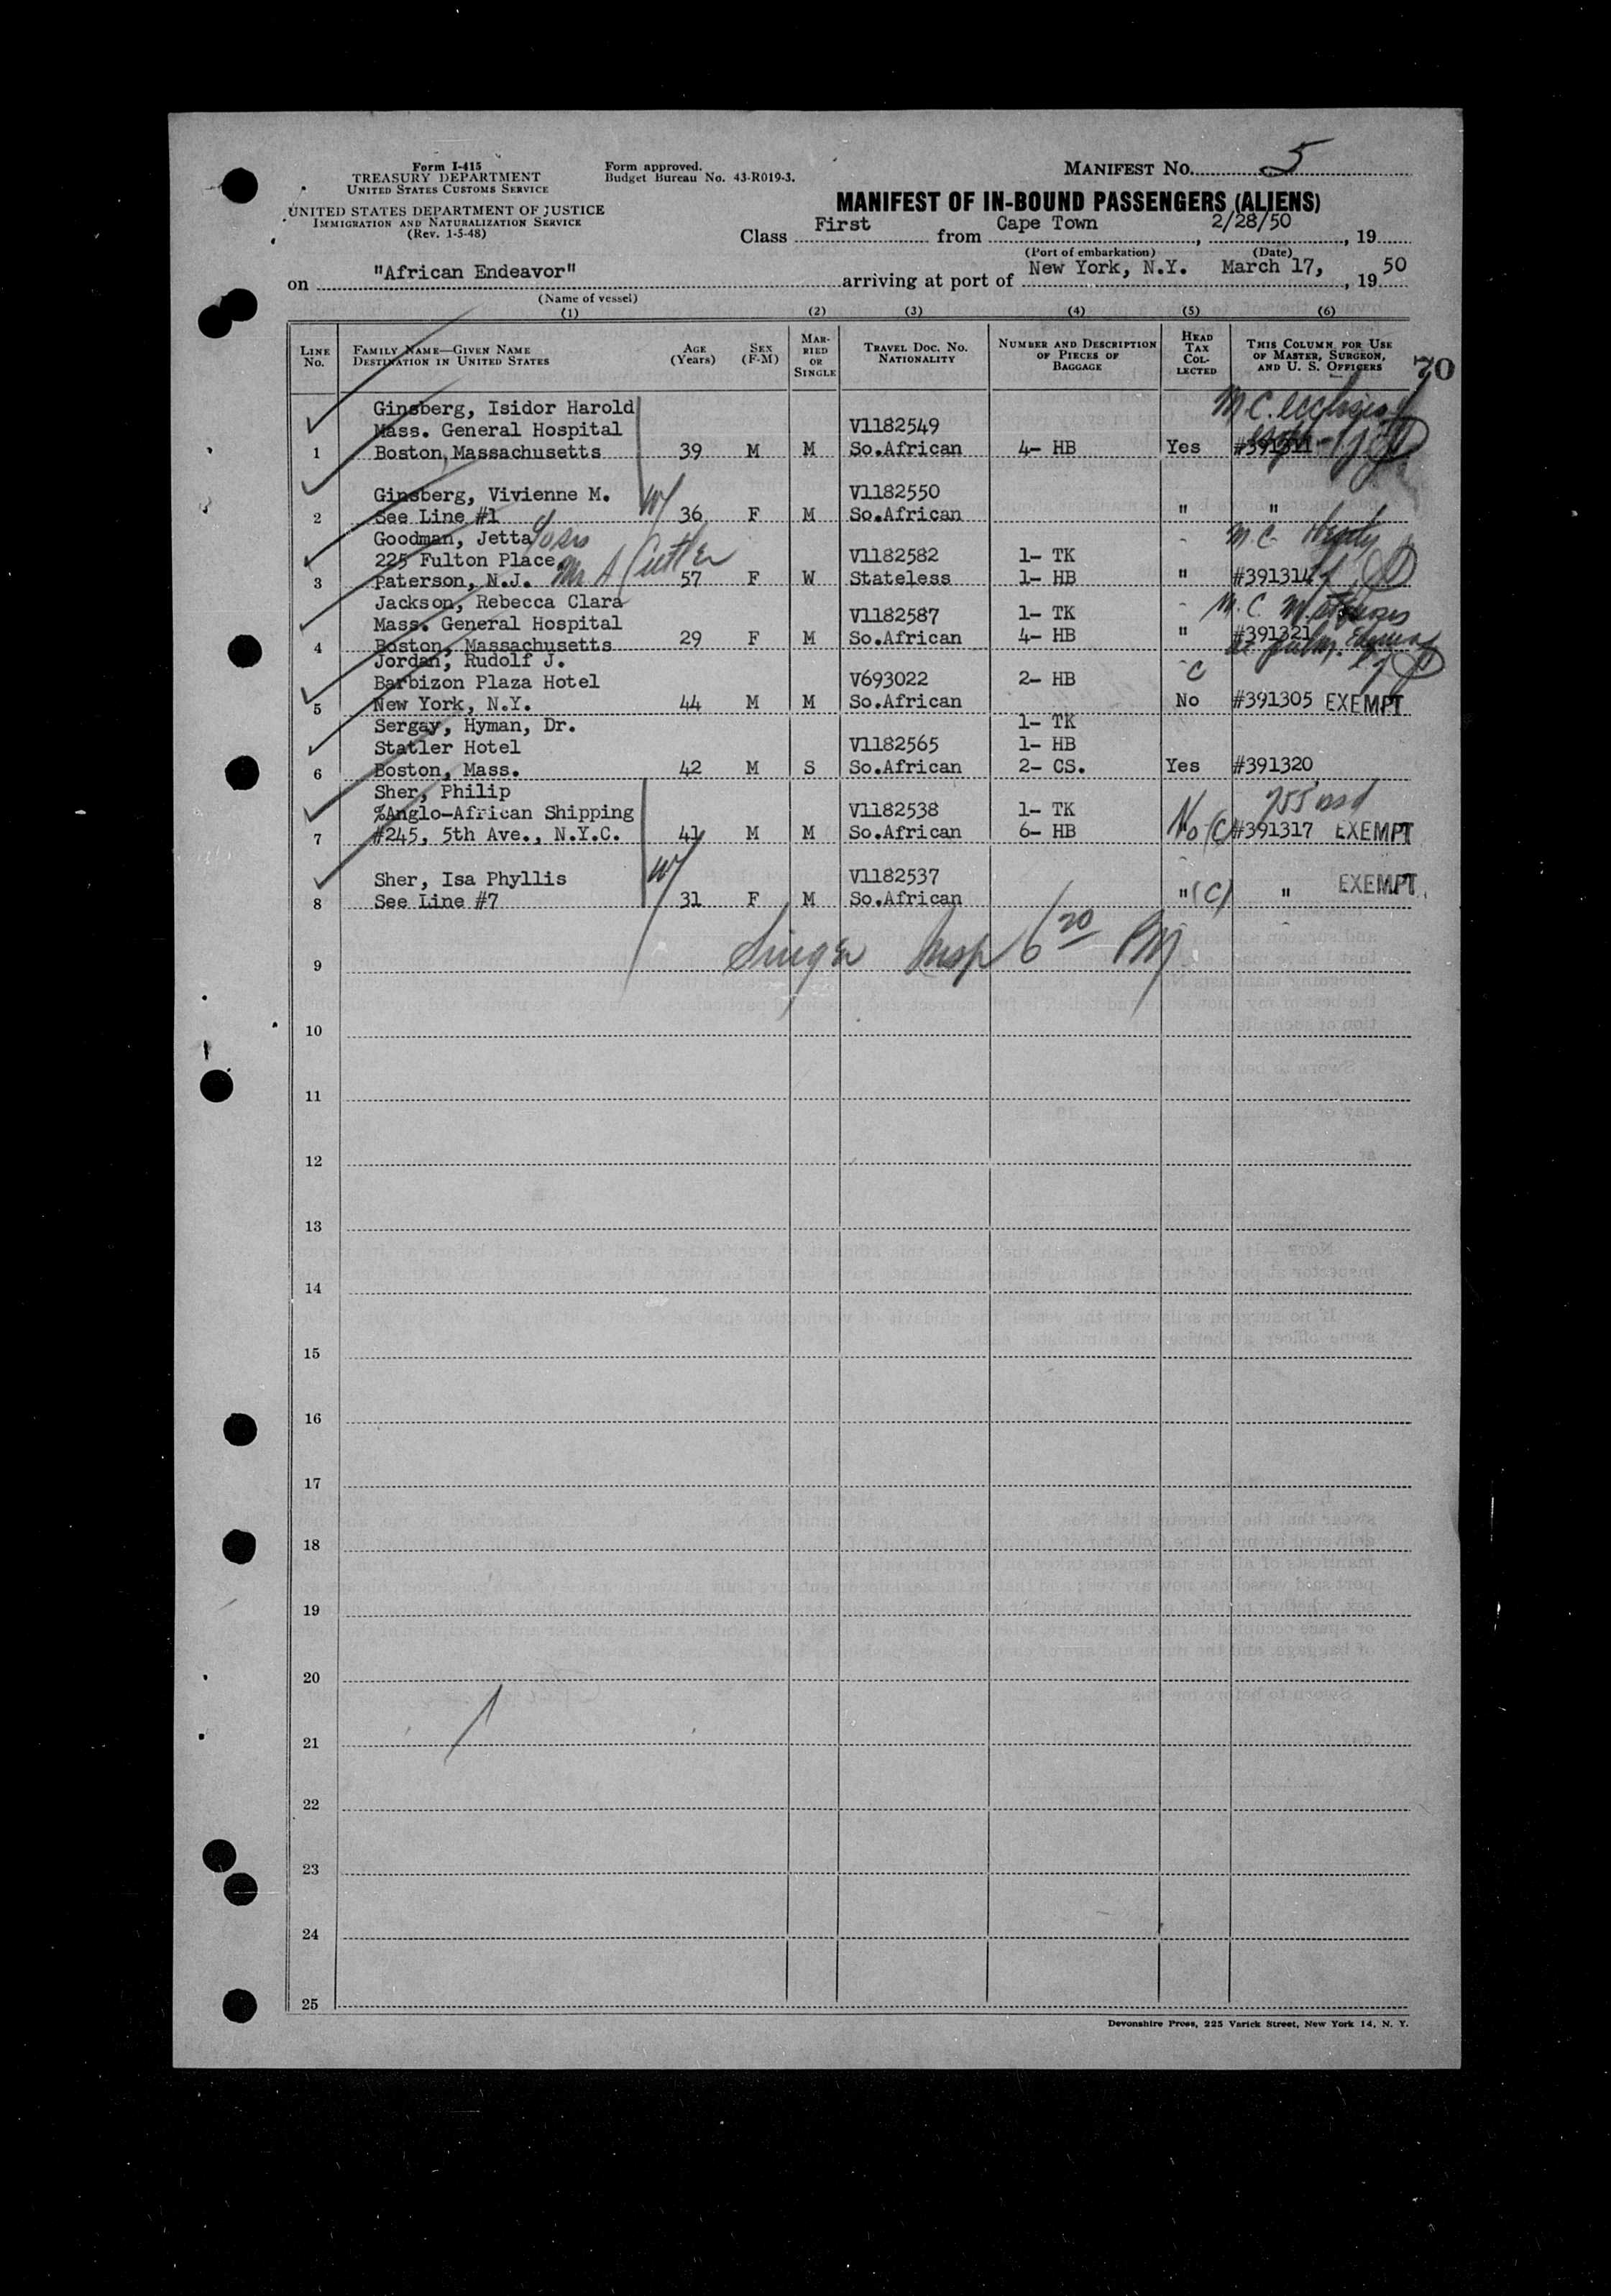 Form I-415
TREASURY DEPARTMENT
UNITED STATES CUSTOMS SERVICE
UNITED STATES DEPARTMENT OF JUSTICE
IMMIGRATION AND NATURALIZATION SERVICE
(Rev. 1-5-48)
Form approved.
Budget Bureau No. 43-R019-3.
MANIFEST No. 5
MANIFEST OF IN-BOUND PASSENGERS (ALIENS)
Class First from Cape Town, 2/28/50, 19
(Port of embarkation) (Date)
on "African Endeavor" arriving at port of New York, N.Y. March 17, 19 50
(Name of vessel)
(1) (2) (3) (4) (5) (6)
LINE No.
FAMILY NAME—GIVEN NAME
DESTINATION IN UNITED STATES
AGE (Years)
SEX (F-M)
MARRIED OR SINGLE
TRAVEL DOC. NO.
NATIONALITY
NUMBER AND DESCRIPTION OF PIECES OF BAGGAGE
HEAD TAX COLLECTED
THIS COLUMN FOR USE OF MASTER, SURGEON, AND U. S. OFFICERS
70
Ginsberg, Isidor Harold
Mass. General Hospital V1182549
1 Boston, Massachusetts 39 M M So.African 4- HB Yes #391311
Ginsberg, Vivienne M. W/ V1182550
2 See Line #1 36 F M So.African " "
Goodman, Jetta M C
225 Fulton Place V1182582 1- TK
Mr A Cutler
3 Paterson, N.J. 57 F W Stateless 1- HB " #391314
Jackson, Rebecca Clara M. C.
Mass. General Hospital V1182587 1- TK
4 Boston, Massachusetts 29 F M So.African 4- HB " #391321
Jordan, Rudolf J.
Barbizon Plaza Hotel V693022 2- HB C
5 New York, N.Y. 44 M M So.African No #391305 EXEMPT
Sergay, Hyman, Dr. 1- TK
Statler Hotel V1182565 1- HB
6 Boston, Mass. 42 M S So.African 2- CS. Yes #391320
Sher, Philip
%Anglo-African Shipping V1182538 1- TK
7 #245, 5th Ave., N.Y.C. 41 M M So.African 6- HB No (C) #391317 EXEMPT
Sher, Isa Phyllis W/ V1182537 EXEMPT
8 See Line #7 31 F M So.African " (C) "
9 Singer Insp 6 20 PM
10
11
12
13
14
15
16
17
18
19
20
21
22
23
24
25
Devonshire Press, 225 Varick Street, New York 14, N. Y.